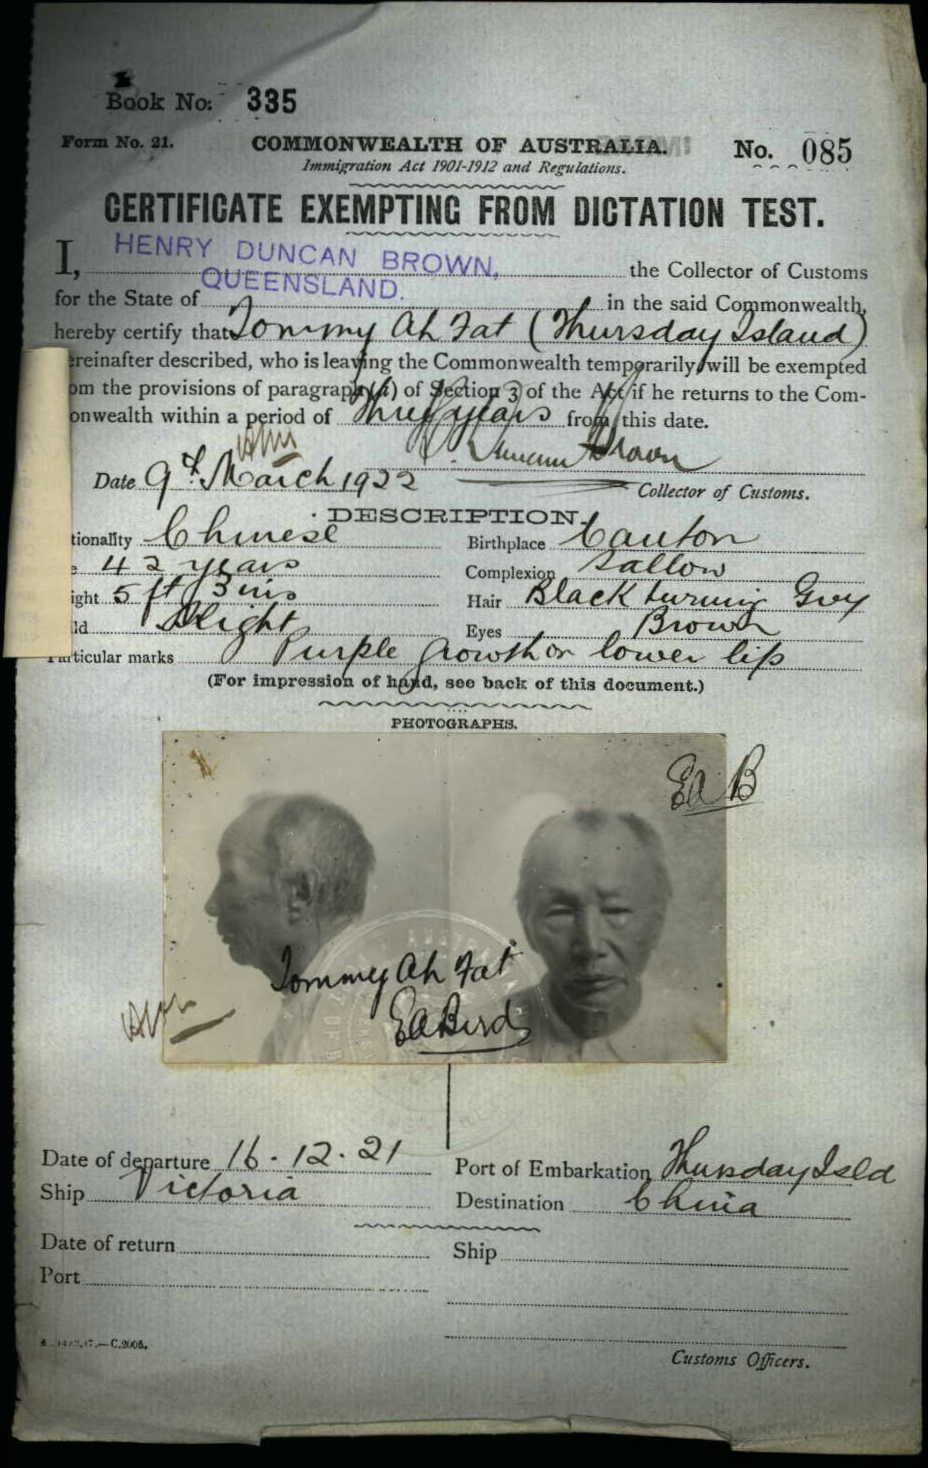 Book No: 335
Form No. 21. COMMONWEALTH OF AUSTRALIA. No. 085
Immigration Act 1901-1912 and Regulations.
CERTIFICATE EXEMPTING FROM DICTATION TEST.
I, HENRY DUNCAN BROWN, the Collector of Customs
for the State of QUEENSLAND. in the said Commonwealth,
hereby certify that Tommy Ah Fat (Thursday Island)
ereinafter described, who is leaving the Commonwealth temporarily, will be exempted
om the provisions of paragraph (a) of Section 3 of the Act if he returns to the Com-
onwealth within a period of Three years from this date.
Duncan Brown
Date 9th March 1922 Collector of Customs.
DESCRIPTION.
tionality Chinese Birthplace Canton
e 42 years Complexion Sallow
ight 5 ft 3 ins Hair Black turning Grey
ld Slight Eyes Brown
Particular marks Purple growth on lower lip
(For impression of hand, see back of this document.)
PHOTOGRAPHS.
EA B
Tommy Ah Fat
EA Bird
Date of departure 16.12.21 Port of Embarkation Thursday Isld
Ship Victoria Destination China
Date of return Ship
Port
C.2005.
Customs Officers.